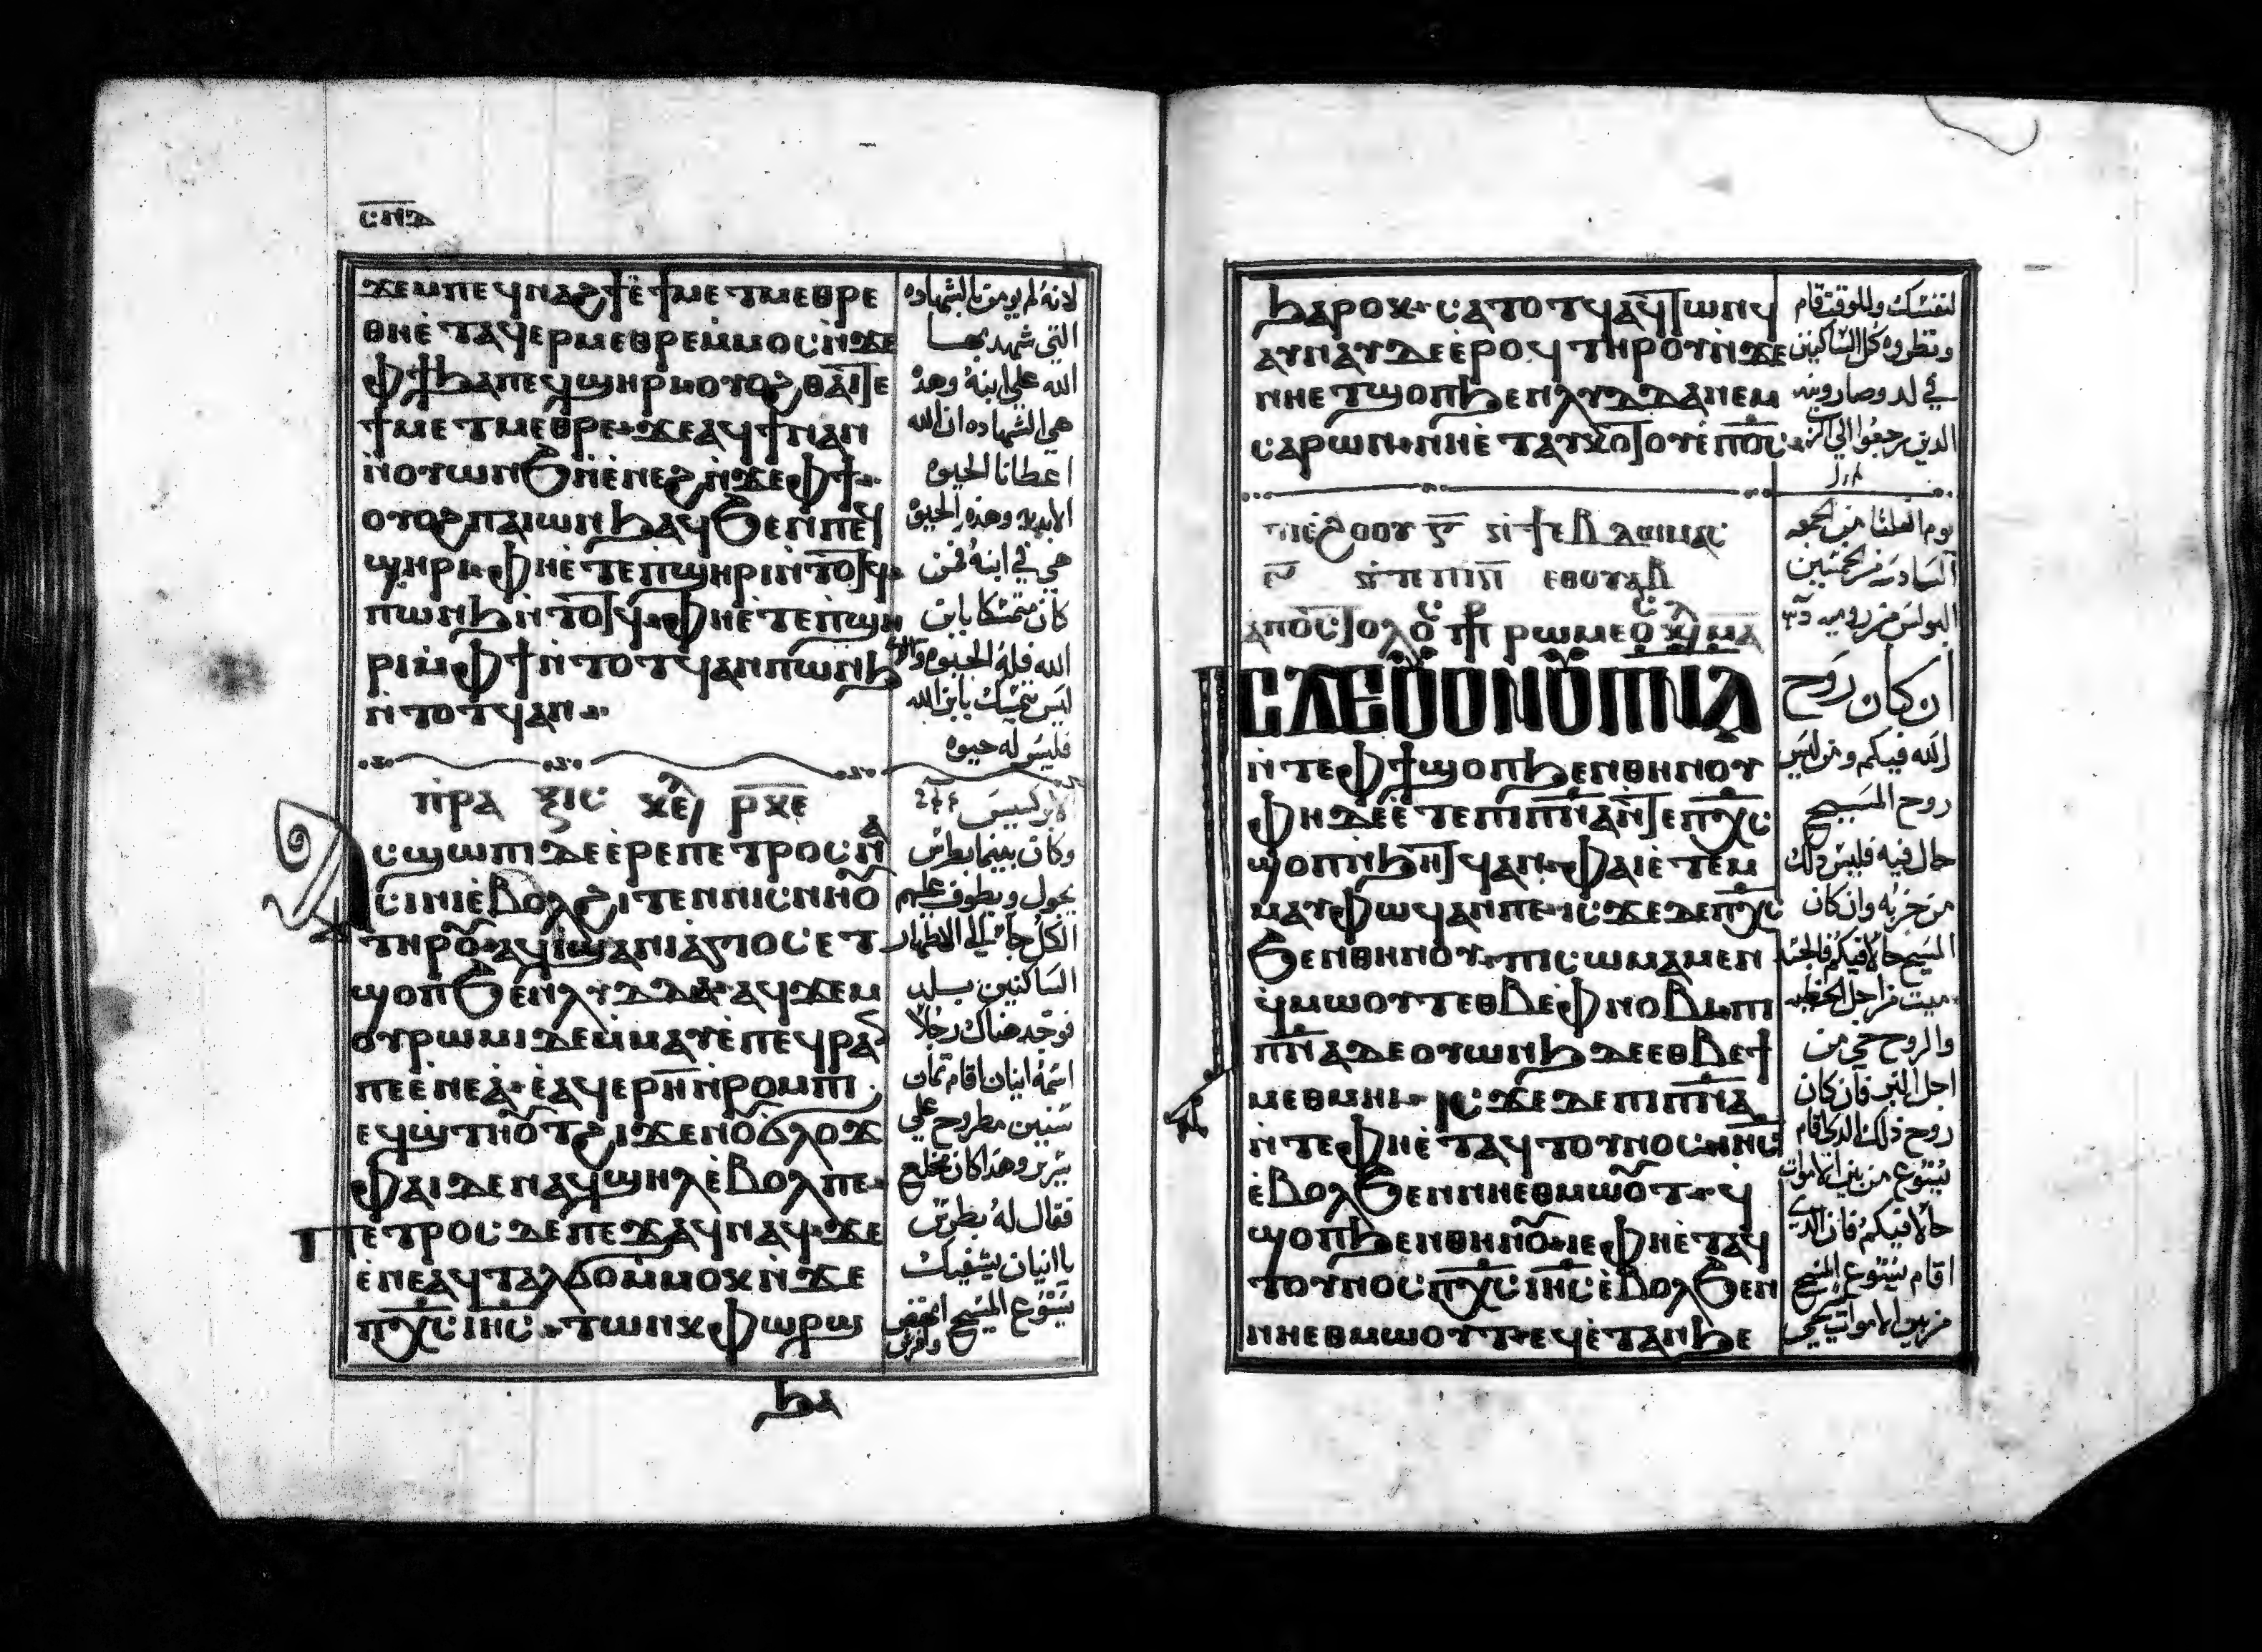 ⲥⲛⲇ
ϫⲉⲙⲡⲉϥⲛⲁϩϯⲉ̀ϯⲙⲉⲧⲙⲉⲑⲣⲉ
ⲑⲏⲉ̀ⲧⲁϥⲉⲣⲙⲉⲑⲣⲉⲙ̀ⲙⲟⲥⲛ̀ϫⲉ
ⲫϯϧⲁⲡⲉϥϣⲏⲣⲓ ⲟⲩⲟϩ ⲑⲁⲓⲧⲉ
ϯⲙⲉⲧⲙⲉⲑⲣⲉ ϫⲉⲁϥϯⲛⲁⲛ
ⲛ̀ⲟⲩⲱⲛϧⲛ̀ⲉ̀ⲛⲉϩⲛ̀ϫⲉⲫϯ
ⲟⲩⲟϩⲡⲁⲓⲱⲛϧⲁϥϧⲉⲛⲡⲉϥ
ϣⲏⲣⲓ ⲫⲏⲉ̀ⲧⲉⲡϣⲏⲣⲓⲛ̀ⲧⲟⲧϥ
ⲡⲱⲛϧⲛ̀ⲧⲟⲧϥ ⲫⲏⲉ̀ⲧⲉⲡ̀ϣⲏ
ⲣⲓⲙ̀ⲫϯⲛ̀ⲧⲟⲧϥⲁⲛⲡⲱⲛϧ
ⲛ̀ⲧⲟⲧϥⲁⲛ
لانه لم يومن بالشهاده
التي شهد بها
الله علي ابنه وهذه
هي الشهاده ان الله
اعطانا الحيوه
الابديه وهذه الحيوه
هي في ابنه فمن
كان متمسكا بابن
الله فله الحيوه والذي
ليس يتمسك بابن الله
فليس له حيوه
ⲡ̀ⲣⲁ ⲝⲓⲥ ⲭⲉ ⲣⲭⲉ
ⲁⲥϣⲱⲡⲓⲇⲉⲉ̀ⲣⲉⲡⲉⲧⲣⲟⲥⲛⲁ
ⲥⲓⲛⲓⲉ̀ⲃⲟⲗϩⲓⲧⲉⲛⲛⲓⲥⲛⲏⲟ
ⲧⲏⲣⲟ ⲁϥⲓ̀ϣⲁⲛⲓⲁⲅⲓⲟⲥⲉⲧ
ϣⲟⲡϧⲉⲛⲗⲩⲇⲇⲁ ⲁϥϫⲉⲙ
ⲟⲩⲣⲱⲙⲓⲇⲉⲙ̀ⲙⲁⲩⲉ̀ⲡⲉϥⲣⲁⲛ
ⲡⲉⲉ̀ⲛⲉⲁ ⲉ̀ⲁϥⲉⲣⲏ̄ⲛ̀ⲣⲟⲙⲡⲓ
ⲉϥϣⲧⲏⲟⲧϩⲓϫⲉⲛⲟϭⲗⲟϫ
ⲫⲁⲓⲇⲉⲛⲁϥϣⲏⲗⲉ̀ⲃⲟⲗⲡⲉ
ⲡⲉⲧⲣⲟⲥⲇⲉⲡⲉϫⲁϥⲛⲁϥ ϫⲉ
ⲉ̀ⲛⲉⲁϥⲧⲁⲗϭⲟⲙ̀ⲙⲟⲕⲛ̀ϫⲉ
ⲡⲭ̅ⲥ̅ⲓⲏ̅ⲥ̅ ⲧⲱⲛⲕⲫⲱⲣϣ
وكان بينما بطرس
يجول ويطوف عليهم
الكل جا الي الاطهار
الساكنين بلد
فوجد هناك رجلا
اسمه انيان اقام ثمان
سنين مطروح علي
سرير وهذا كان مخلع
فقال له بطرس
يا انيان يشفيك
يسوع المسيح انهض
وافرش
ϧⲁ
ϧⲁⲣⲟⲕ ⲥⲁⲧⲟⲧϥⲁϥⲧⲱⲛϥ
ⲁⲩⲛⲁⲩⲇⲉⲉ̀ⲣⲟϥ ⲧⲏⲣⲟⲩⲛ̀ϫⲉ
ⲛⲏⲉⲧϣⲟⲡϧⲉⲛⲗⲩⲇⲇⲁⲛⲉⲙ
ⲥⲁⲣⲱⲛ ⲛⲏⲉ̀ⲧⲁⲩⲕⲟⲧⲟⲩⲉ̀ⲡⲟ̅ⲥ̅
لنفسك وللوقت قام
ونظروه كل الساكنين
في لد وصارونه
الذين رجعوا الي الرب
ⲡⲓⲉ̀ϩⲟⲟⲩ ⲅ̅ ⳉⲓ ϯⲉⲃⲇⲟⲙⲁⲥ
ⲉ̅ ⲛ̀ⲧⲉ ⲡⲓⲛ̅ ⲉⲑⲟⲩⲁⲃ
ⲁⲡⲟⲥⲧⲟⲗⲟⲥ ⲡⲣ ⲣⲱⲙⲉⲟⲥ ⲕⲉ ⲙⲁ
ⲓⲥϫⲉⲟⲩⲟⲛⲟⲩⲡⲛ̅ⲁ̅
ⲛ̀ⲧⲉⲫϯϣⲟⲡϧⲉⲛⲑⲏⲛⲟⲩ
ⲫⲏⲇⲉⲉ̀ⲧⲉⲡⲓⲡⲛ̅ⲁ̅ⲛ̀ⲧⲉⲡⲭ̅ⲥ̅
ϣⲟⲡⲛ̀ϧⲏⲧϥⲁⲛ ⲫⲁⲓⲉ̀ⲧⲉⲙ
ⲙⲁⲩⲫⲱϥⲁⲛⲡⲉ ⲓⲥϫⲉⲇⲉⲡⲭ̅ⲥ̅
ϧⲉⲛⲑⲏⲛⲟⲩ ⲡⲓⲥⲱⲙⲁⲙⲉⲛ
ϥⲙⲱⲟⲩⲧⲉⲑⲃⲉⲫⲛⲟⲃⲓ ⲡⲓ
ⲡⲛ̅ⲁ̅ⲇⲉⲟⲩⲱⲛϧⲇⲉⲉⲑⲃⲉϯ
ⲙⲉⲑⲙⲏⲓ ⲓⲥϫⲉⲇⲉⲡⲓⲡⲛ̅ⲁ̅
ⲛ̀ⲧⲉⲫⲏⲉ̀ⲧⲁϥⲧⲟⲩⲛⲟⲥⲓⲏ̅ⲥ̅
ⲉ̀ⲃⲟⲗϧⲉⲛⲛⲏⲉⲑⲙⲱⲟⲧ ϥ
ϣⲟⲡϧⲉⲛⲑⲏⲛⲟ ⲓⲉⲫⲏⲉ̀ⲧⲁϥ
ⲧⲟⲩⲛⲟⲥⲡⲭ̅ⲥ̅ⲓⲏ̅ⲥ̅ⲉ̀ⲃⲟⲗϧⲉⲛ
ⲛⲏⲉⲑⲙⲱⲟⲩⲧ ⲉϥⲉ̀ⲧⲁⲛϧⲉ
يوم الثلثا من الجمعه
السادسه من الخمسين
البولس من روميه
ان كان روح
الله فيكم ومن ليس
روح المسيح
حال فيه فليس ذلك
من حزبه وان كان
المسيح حالا فيكم فالجسد
ميت من اجل الخطيه
والروح حي من
اجل البر فان كان
روح ذلك الذي اقام
يسوع من بين الاموات
حالا فيكم فان الذي
اقام يسوع المسيح
من بين الاموات يحيي